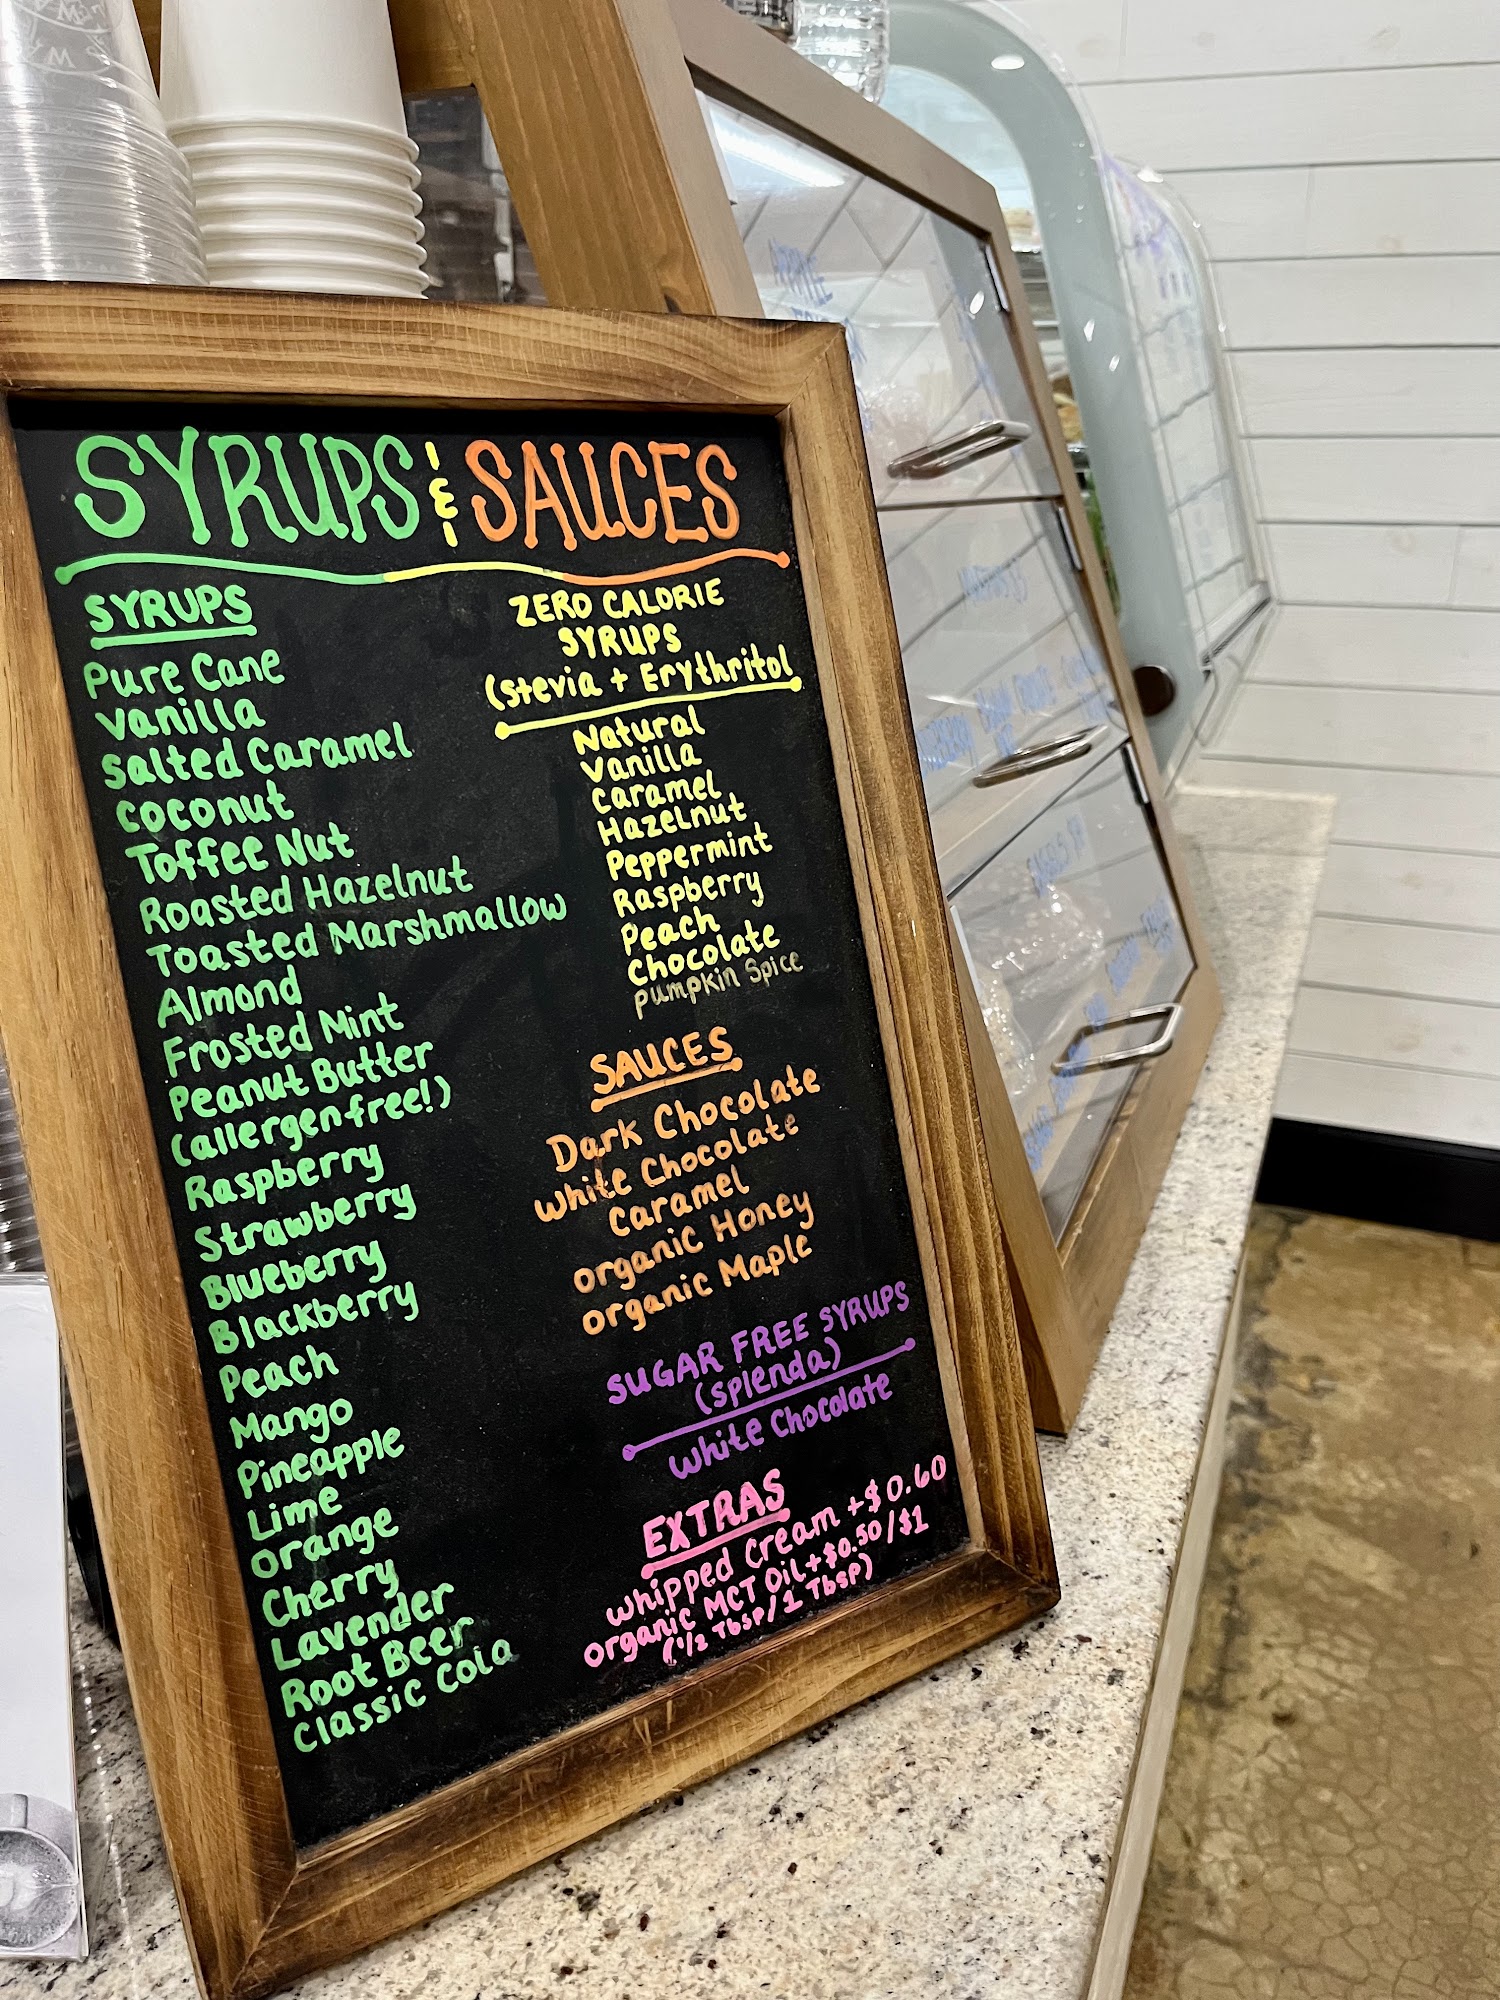 SYRUPS & SAUCES
SYRUPS
Pure Cane
Vanilla
Salted Caramel
Coconut
Toffee Nut
Roasted Hazelnut
Toasted Marshmallow
Almond
Frosted Mint
Peanut Butter
(allergen free!)
Raspberry
Strawberry
Blueberry
Blackberry
Peach
Mango
Pineapple
Lime
Orange
Cherry
Lavender
Root Beer
Classic Cola
ZERO CALORIE
SYRUPS
(Stevia + Erythritol
Natural
Vanilla
Caramel
Hazelnut
Peppermint
Raspberry
Peach
Chocolate
Pumpkin Spice
SAUCES
Dark Chocolate
White Chocolate
Caramel
Organic Honey
Organic Maple
SUGAR FREE SYRUPS
(Splenda)
White Chocolate
EXTRAS
Whipped Cream +$0.60
Organic MCT Oil +$0.50/$1
(1/2 Tbsp/1 Tbsp)
APPLE